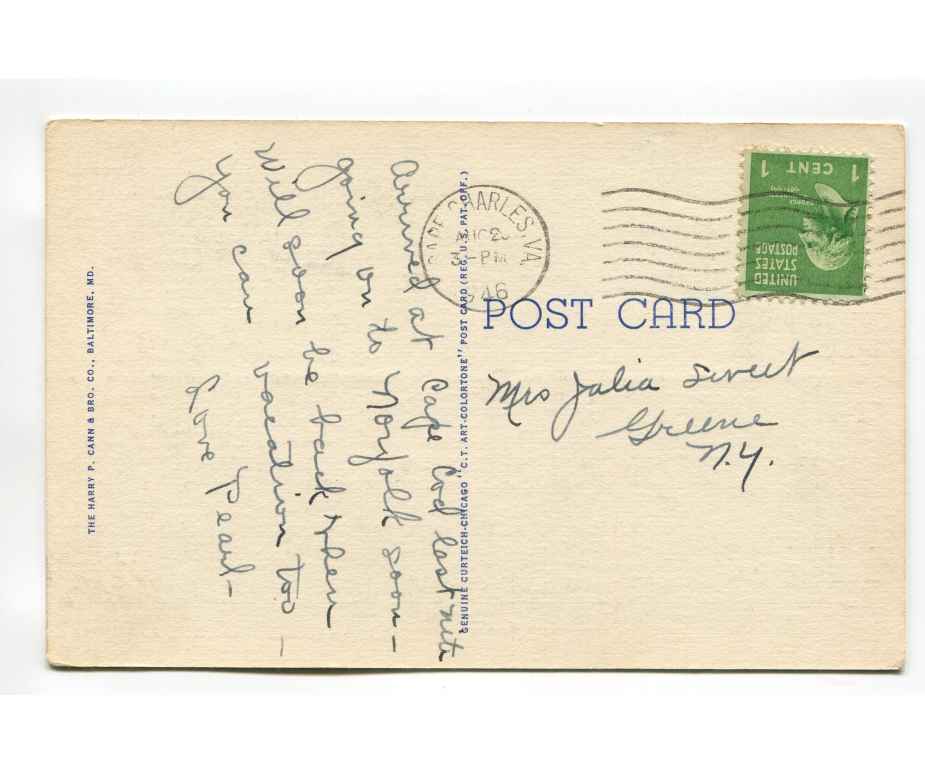 Arrived at Cape Cod last nite
going on to Norfolk soon -
Will soon be back then
you can vacation too -
Love Pearl -
THE HARRY P. CANN & BRO. CO., BALTIMORE, MD.
GENUINE CURTEICH-CHICAGO "C.T. ART-COLORTONE" POST CARD (REG. U.S. PAT. OFF.)
CAPE CHARLES, VA.
3-PM
1946
POST CARD
UNITED
STATES
POSTAGE
1 CENT 1
Mrs Julia Sweet
Greene
N.Y.